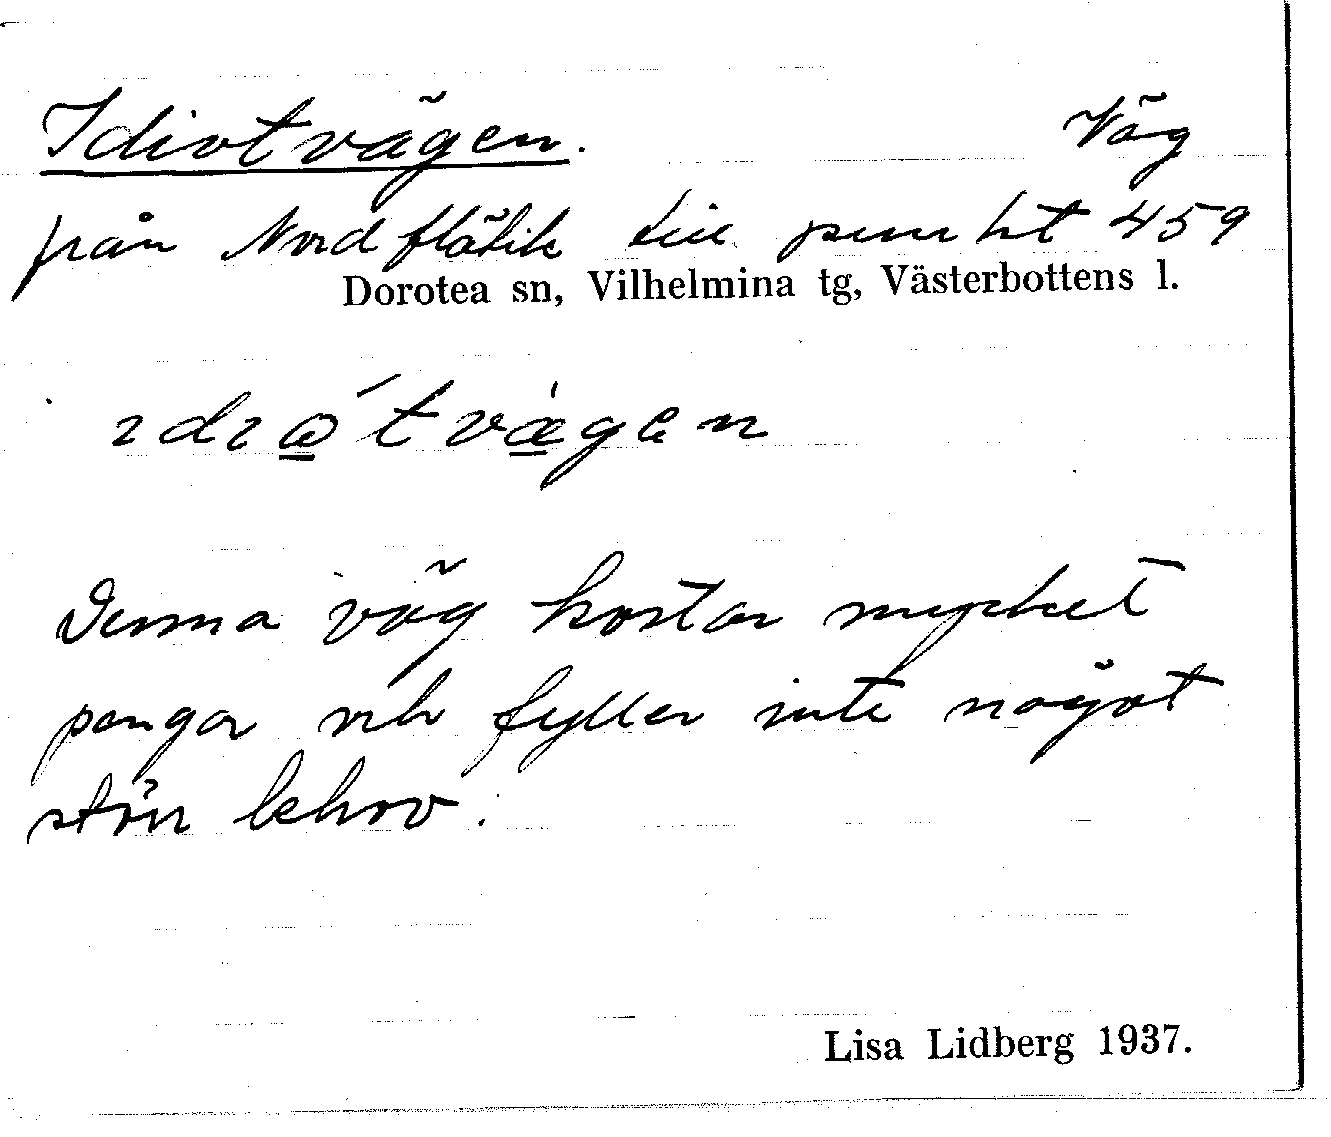 Idiotvägen. Väg
från Nordflätik till punkt 459
Dorotea sn, Vilhelmina tg, Västerbottens l.
ıdıώ̲tvæ̲̀gen
Denna väg kostar mycket
pengar och fyller inte något
större behov.
Lisa Lidberg 1937.